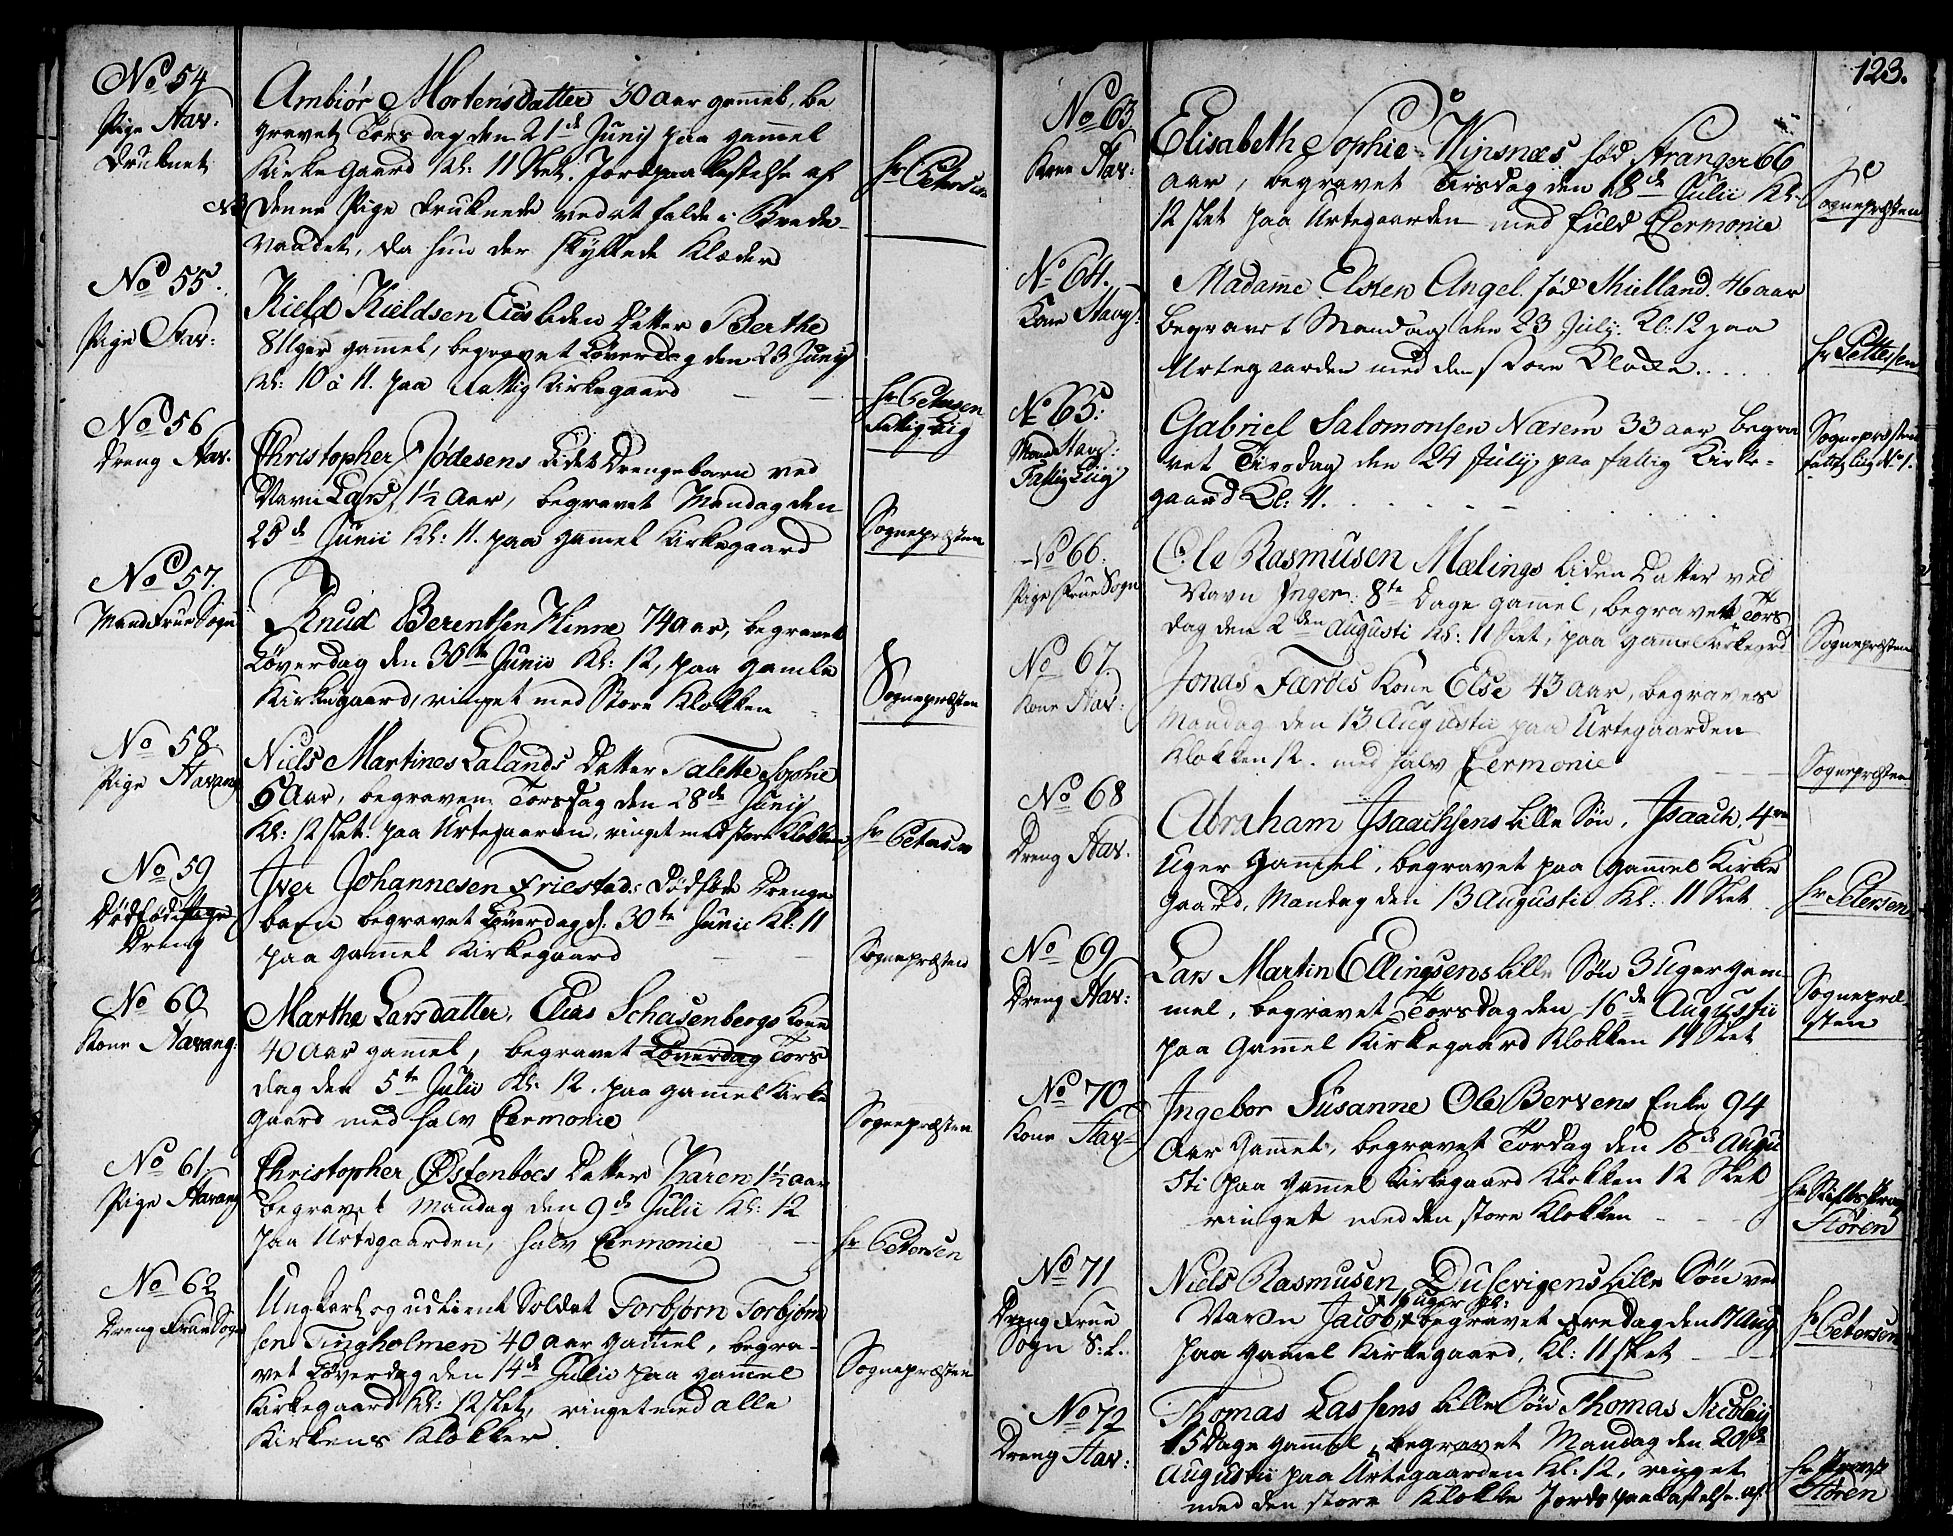 No 54
Pige Stav:
Druknet
Ambiør Mortensdatter 30 Aar gammel, be
gravet Torsdag den 21de Junij paa gammel
Kirke Gaard Kl: 11 Slet. Jordpaakastelse af
NB denne Pige druknede ved at falde i Brede-
Vandet, da hun der skyllede Klæder
Hr Petersen
No 55.
Pige Stav:
Kield Kieldsen Eies liden Datter Berthe
8 Uger gammel, begravet Løverdag den 23 Junij
Kl: 10 à 11. paa Fattig Kirkegaard
Hr Petersen
Fattig Liig
No 56
Dreng Stav.
Christopher Jødesens lidet Drengebarn ved
Navn Lars, 1½ Aar, begravet Mandag den
25de Junii Kl: 11. paa Gammel Kirkegaard
Sognepræsten
No 57.
Mand Frue Sogn
Knud Berentsen Hinne 74 Aar, begravet
Løverdag den 30te Junii Kl: 12, paa Gamle
Kirkegaard, ringet med Store Klokken
Sognepræsten
No 58
Pige Stavang
Niels Martines Lalands Datter Talette Sophie
6 Aar, begraven Torsdag den 28de Junij
Kl: 12 slet. paa Urtegaarden, ringet med store Klokken
Hr Petersen
No 59
Dødfødt Pige
Dreng
Iver Johannesen Friestad: Dødføde Drenge
barn begravet Løverdag d. 30te Junii Kl: 11
paa Gammel Kirkegaard
Sognepræsten
No 60
Kone Stavang:
Marthe Larsdatter, Elias Schasenbergs Kone
40 Aar gammel, begravet Løverdag Tors
dag den 5te Julii Kl: 12. paa gammel Kirke
gaard med halv Cermonie
Sognepræsten
No 61.
Pige Stavang
Christopher Østenboes Datter Karen 1½ aar
begravet Mandag den 9de Julii Kl: 12
paa Urtegaarden, halv Cermonie
Hr Petersen
No 62
Dreng Frue Sogn
Ungkarl og udtient Soldat Torbjørn Torbjørn
sen Tingholmen 40 Aar Gammel, begra-
vet Løverdag den 14de Julii paa gammel
Kirkegaard Kl: 12 slet, ringet med alle
Kirkens Klokker
Sognepræsten
123.
No 63
Kone Stav:
Elisabeth Sophie Winsnæs fød Stranger 66
aar, begravet Tirsdag den 18de Julii Kl:
12 slet paa Urtegaarden med fuld Cermonie
Sognepræsten
No 64.
Kone Stavg:
Madamme Elsken Angel. fød Mulland. 46 aar
begravet Mandag den 23 July. Kl: 12 paa
Urtegaarden med den store Klocke.
Hr Pettersen
No 65:
Mand Stavg:
Fattig Liig
Gabriel Salomonsen Nærem 33 aar begra
vet Tirsdag den 24 Julij, paa fattig Kirke-
gaard Kl: 11.
Sognepræsten
fattig Liig No 1.
No 66.
Pige Frue Sogn
Ole Rasmusen Mælings liden Datter ved
Navn Inger: 8te Dage gamel, begravet Tors
dag den 2den Augusti Kl: 11 Slet, paa Gamel Kirkegrd
Sognepræsten
No 67.
Kone Stav:
Jonas Færøes Kone Else 43 aar, begraves
Mandag den 13 Augustii paa Urtegaarden
Klokken 12. med halv Cermonie
Sognepræsten
No 68
Dreng Stav.
Abraham Isaachsens lille Søn, Isaach, 4re
Uger Gamel, begravet paa Gammel Kirke
Gaard, Mandag den 13 Augustii Kl: 11 Slet
Hr Petersen
No 69
Dreng Stav:
Lars Martin Ellingsens lille Søn 3 Uger Gam
mel, begravet Torsdag den 16de Augustii
paa Gammel Kirkegaard Klokken 11 Slet
Sognepræ-
sten
No 70
Kone Stav-
Ingebor Susanne Ole Bervens Enke 94
Aar Gammel, begravet Torsdag den 16de Augu
sti paa Gammel Kirkegaard Klokken 12 Slet
ringet med den store Klokken
Hr Stiftsprovst
Støren
No 71
Dreng Frue
Sogn S: L.
Niels Rasmusen Dusevigens lille Søn ved
Navn Jacob, begravet Fredag den 17 Aug
paa Gamel Kirkegaard, Kl: 11 slet
Hr Petersen
No 72
Dreng Stav:
Thomas Lassens lille Søn Thomas Nicolay
15 Dage Gammel, begravet Mandag den 20de
Augustii paa Urtegaarden Kl: 12, ringet
med den store Klokke Jords paakastelse af
Hr Provst
Støren